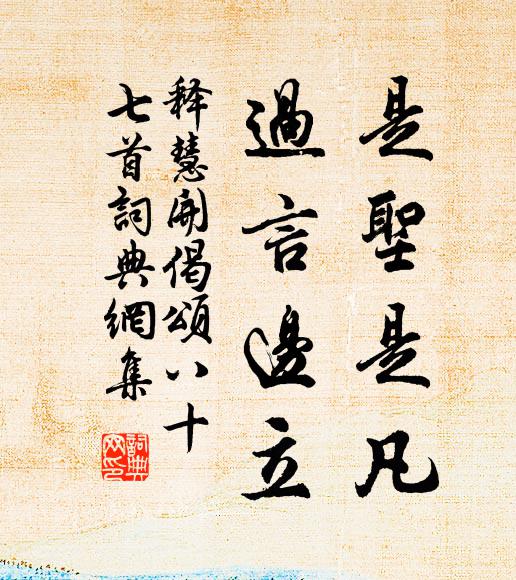 是聖是凡
過言邊立
释慧開偈頌八十
七首詞典網集
詞典網印